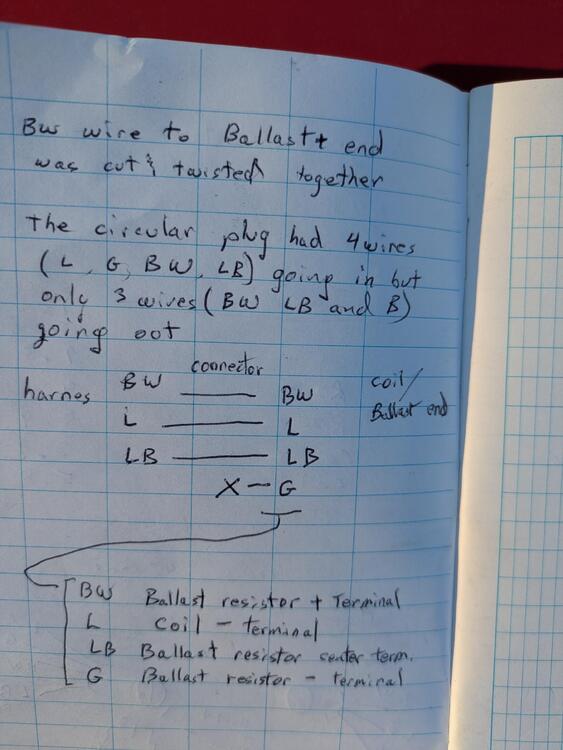 BW wire to Ballast+ end
was cut & twisted together
The circular plug had 4 wires
(L, G, BW, LB) going in but
only 3 wires (BW LB and B)
going out
connector
harnes BW — BW coil/
Ballast end
L — L
LB — LB
X — G
BW Ballast resistor + Terminal
L coil - terminal
LB Ballast resistor center term.
G Ballast resistor - terminal